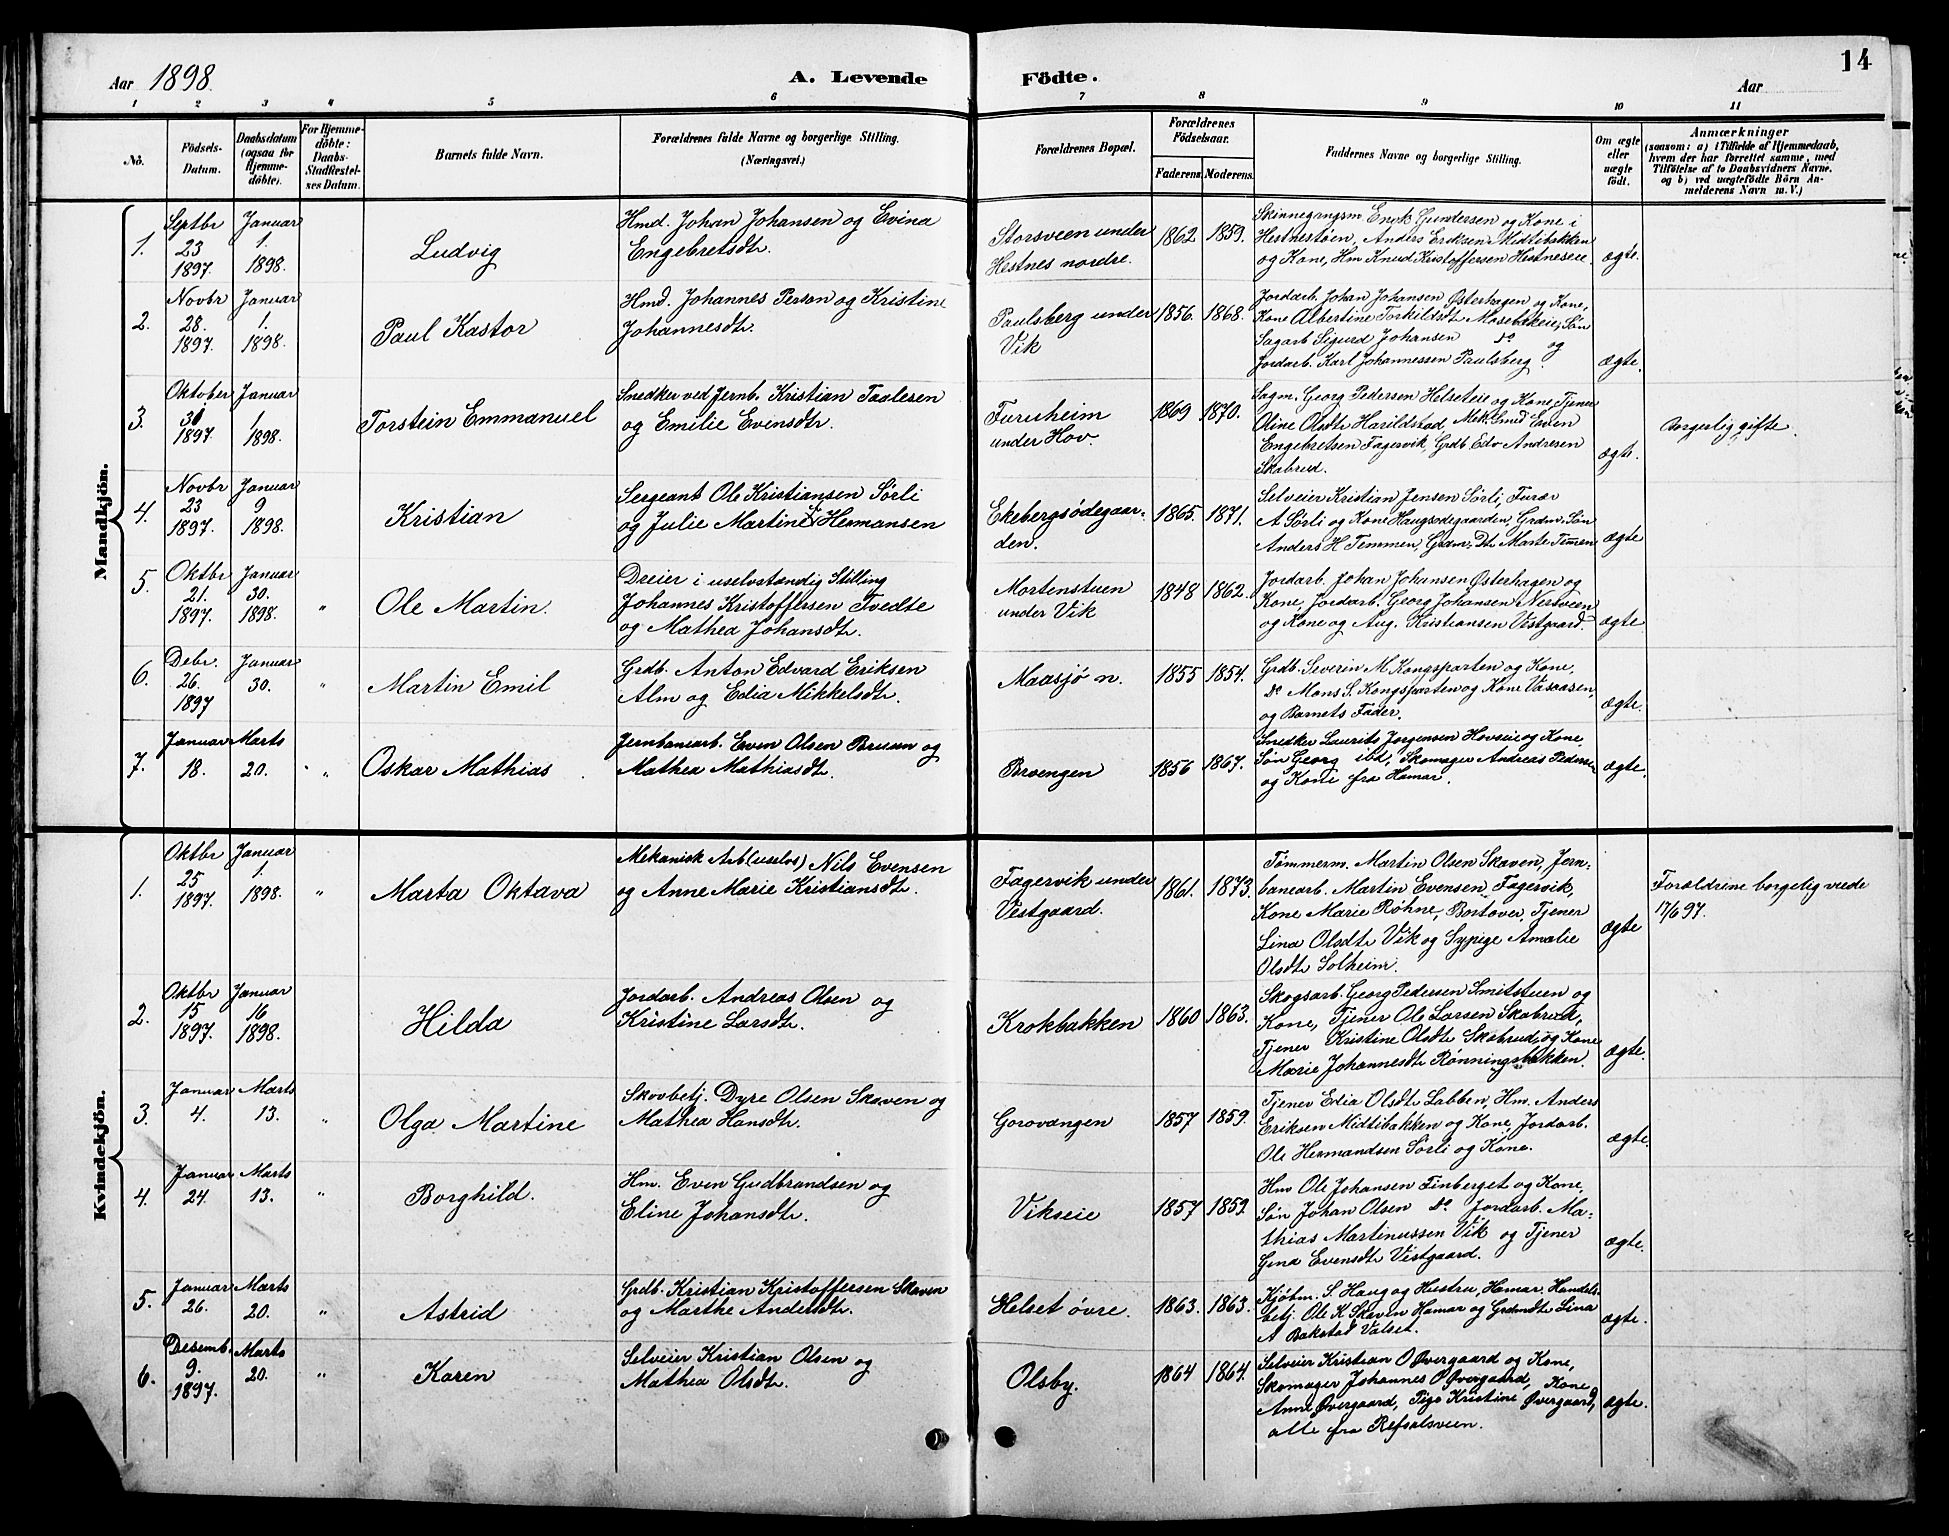 14
Aar 1898.
A. Levende Födte.
Aar
1 2 3 4 5 6 7 8 9 10 11
No.
Födsels-Datum.
Daabsdatum (ogsaa for Hjemme-döbte).
For Hjemme-döbte: Daabs-Stadfæstel-ses Datum.
Barnets fulde Navn.
Forældrenes fulde Navne og borgerlige Stilling.
(Næringsvei.)
Forældrenes Bopæl.
Forældrenes Födselsaar.
Faderens. Moderens.
Faddernes Navne og borgerlige Stilling.
Om ægte eller uægte födt.
Anmærkninger
(saasom: a) i Tilfælde af Hjemmedaab,
hvem der har forrettet samme, med
Tilföielse af to Daabsvidners Navne,
og b) ved uægtefödte Börn An-
melderens Navn m. V.)
Mandkjön.
1.
Septbr 23 1897.
Januar 1. 1898.
Ludvig
Hmd. Johan Johansen og Evina
Engebretsdtr.
Storsveen under
Hestnes nordre.
1862 1859.
Skinnegangsm Enok Gundersen og Kone i
Hestnestøen, Anders Eriksen Midtibakken
og Kone, Hm Knud Kristoffersen Hestneseie.
ægte.
2.
Novbr 28. 1897.
Januar 1. 1898.
Paul Kastor
Hmd. Johannes Person og Kristine
Johannesdtr.
Paulsberg under
Vik
1856. 1868.
Jordarb. Johan Johansen Østerhagen og Kone,
Kone Albertine Torkildsdtr Mosebekeie, Søn
Sagarb Sigurd Johansen do og
Jordarb. Karl Johannessen Paulsberg.
ægte.
3.
Oktober 30 1897.
Januar 1. 1898.
Torstein Emmanuel
Snedker ved Jernb. Kristian Taalesen
og Emilie Evensdtr.
Furuheim
under Hov.
1869 1870.
Sagm. Georg Pedersen Helseteie og Kone, Tjener
Oline Olsdtr Harildstad, Mek. Smed Even
Engebretsen Fagervik, Grdb Edv Andresen
Skabrud.
ægte.
Borgerlig gifte.
4.
Novbr 23 1897.
Januar 9 1898.
Kristian
Sergeant Ole Kristiansen Sørli
og Julie Martine Hermansen
Ekebergsødegaar-
den.
1865. 1871.
Selveier Kristian Jensen Sørli, Furer
A Sørli og Kone Haugsodegaarden, Grdm. Søn
Anders H Temmen, Grdm. Dtr Marte Temmen
ægte
5.
Oktbr 21. 1897.
Januar 30. 1898.
"
Ole Martin.
Dreier i uselvstændig Stilling
Johannes Kristoffersen Tvedte
og Mathea Johansdtr.
Mortenstuen
under Vik
1848 1862.
Jordarb. Johan Johansen Østerhagen og
Kone, Jordarb. Georg Johansen Nersveen
og Kone og Aug. Kristiansen Vestgaard.
ægte
6.
Debr. 26. 1897
Januar 30.
"
Martin Emil
Grdb. Anton Edvard Eriksen
Alm og Edia Mikkelsdtr.
Maasjø n.
1855 1854.
Grdb. Severin M. Kongsparten og Kone,
do Mons S. Kongsparten og Kone Vasaasen,
og Barnets Fader.
ægte.
7.
Januar 18.
Marts 20.
"
Oskar Mathias
Jernbanearb. Even Olsen Bruun og
Mathea Mathiasdtr.
Brvengen
1856 1867.
Snedker Laurits Jørgensen Hovseie og Kone,
Søn Georg ibd, Skomager Andreas Pedersen
og Kone fra Hamar.
ægte.
Kvindekjön.
1.
Oktbr 25 1897.
Januar 1. 1898.
"
Marta Oktava
Mekanisk Arb (uselvs) Nils Evensen
og Anne Marie Kristiansdtr.
Fagervik under
Vestgaard.
1861. 1873.
Tømmerm. Martin Olsen Skaven, Jern-
banearb. Martin Evensen Fagervik,
Kone Marie Røhne, Bostover, Tjener
Lina Olsdtr Vik og Sypige Amalie
Olsdtr Solheim.
ægte
Forældrene borgelig viede
17/6 97.
2.
Oktbr 15 1897.
Januar 16 1898.
Hilda
Jordarb. Andreas Olsen og
Kristine Larsdtr.
Krokbakken
1860 1863.
Skogsarb. Georg Pedersen Smitstuen og
Kone, Tjener Ole Larsen Skabrud,
Tjener Kristine Olsdtr Skabrud, og Kone
Marie Johannesdtr Rønningsbakken.
ægte.
3.
Januar 4.
Marts 13.
"
Olga Martine
Skovbetj. Dyre Olsen Skaven og
Mathea Hansdtr.
Gorovangen
1857 1859.
Tjener Edia Olsdtr Labben, Hm. Anders
Eriksen Midtibakken og Kone, Jordarb.
Ole Hermandsen Sørli og Kone.
ægte
4.
Januar 24.
Marts 13.
"
Borghild.
Hm. Even Gudbrandsen og
Eline Johansdtr.
Vikseie
1857 1859.
Hm Ole Johansen Finberget og Kone,
Søn Johan Olsen do Jordarb. Ma-
thias Martinussen Vik og Tjener
Gina Evensdtr Vestgaard.
ægte.
5.
Januar 26.
Marts 20.
"
Astrid
Grdb. Kristian Kristoffersen Skaven
og Marthe Andersdtr.
Helset øvre.
1863. 1863.
Kjøbm. S. Haug og Hustru, Hamar, Handels-
betj. Ole K. Skaven Hamar og Grdmdtr Lina
A Bakstad Valset.
ægte.
6.
Desemb. 9. 1897.
Marts 20.
"
Karen
Selveier Kristian Olsen og
Mathea Olsdtr.
Olsby.
1864 1864.
Selveier Kristian O Øvergaard og Kone,
Skomager Johannes O Øvergaard, Kone
Anne Øvergaard, Pige Kristine Øvergaard,
alle fra Refsalsveen.
ægte.